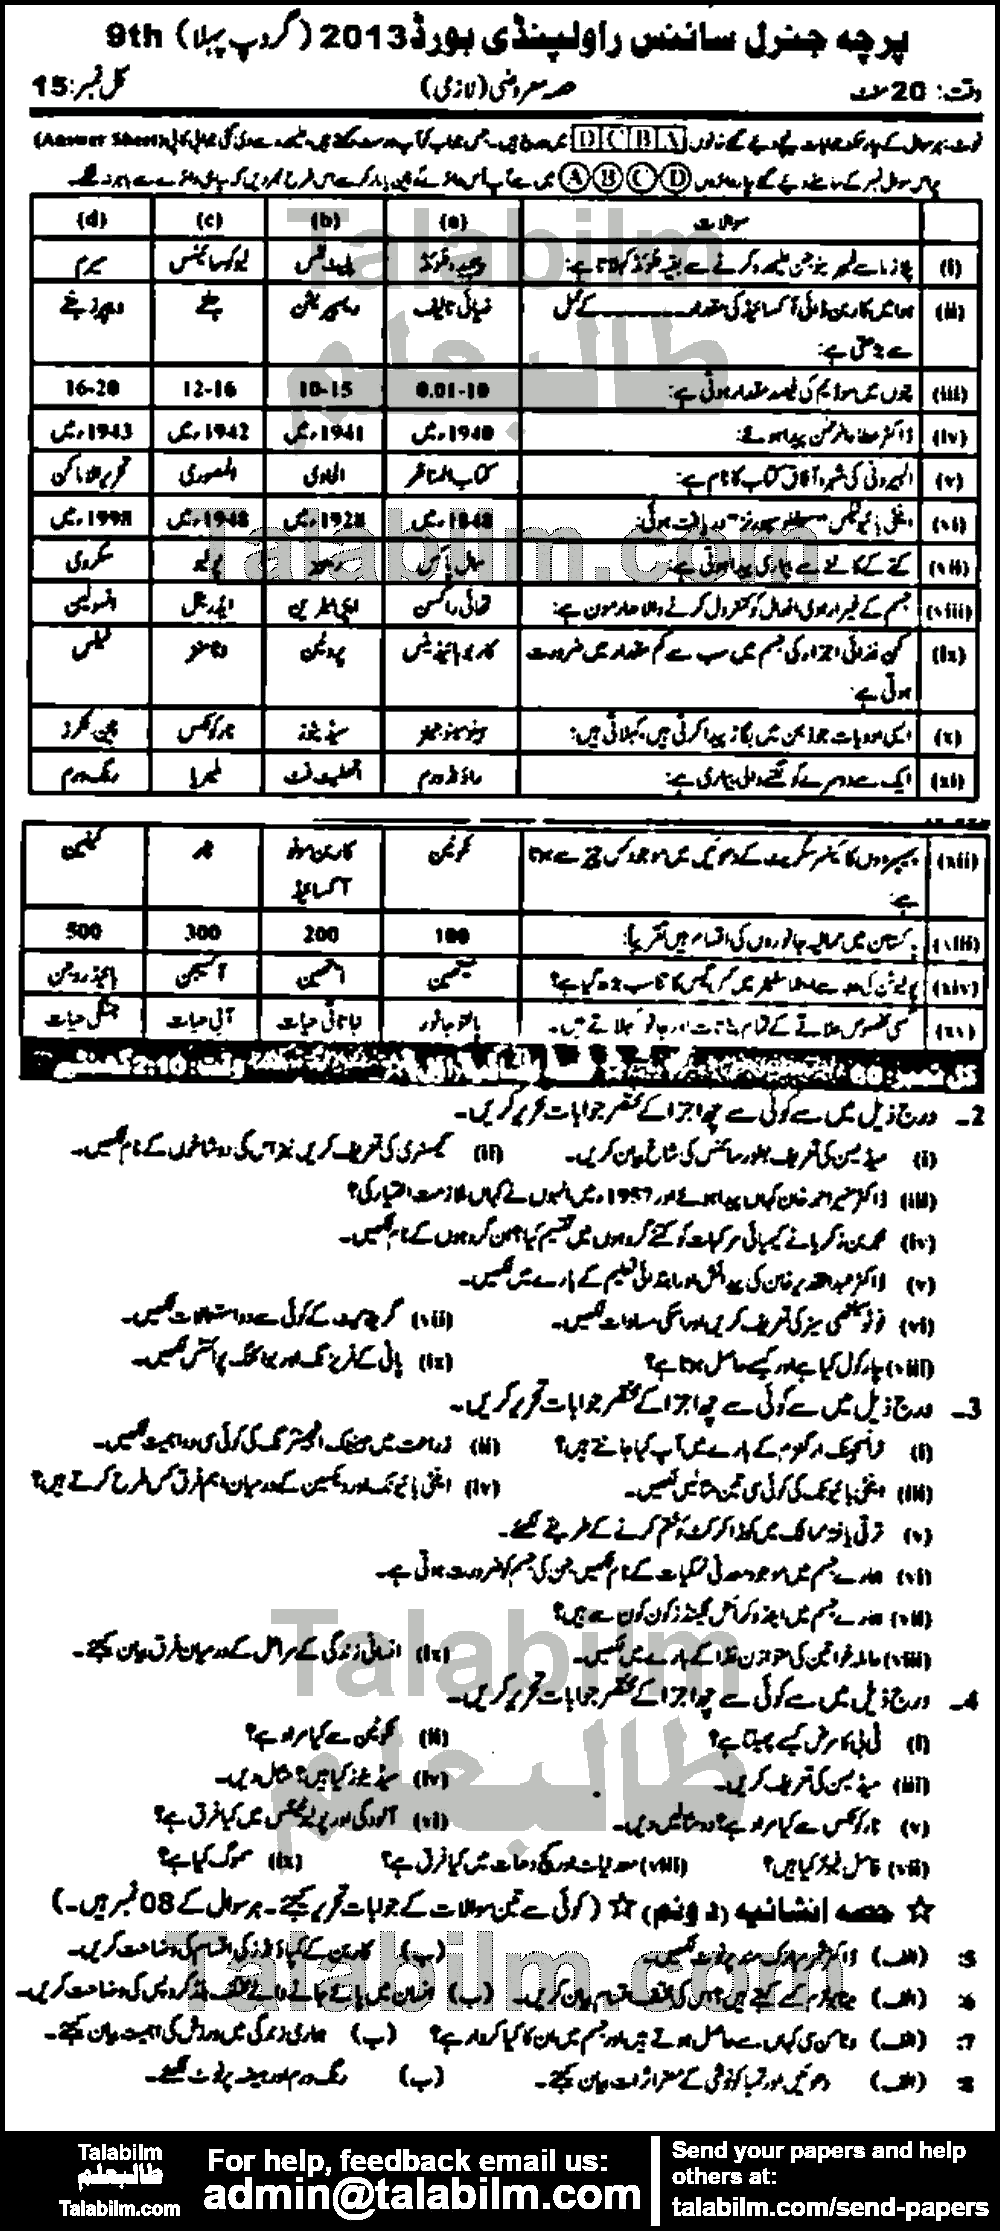 پرچہ جنرل سائنس راولپنڈی بورڈ 2013 (گروپ پہلا) 9th
وقت: 20 منٹ حصہ معروضی (لازمی) کل نمبر: 15
سوالات (a) (b) (c) (d)
(i) پلازما سے فیبرینوجن علیحدہ کرنے سے بقیہ فلوئڈ کہلاتا ہے: پلیٹ لٹس لیوکوسائیٹس سیرم
(ii) ہوا میں کاربن ڈائی آکسائیڈ کی مقدار ــــــــ کے عمل سے بڑھتی ہے: ضیائی تالیف ریسپریشن جلنے
(iii) ہوتی ہے: 0.01-10 10-15 12-16 16-20
(iv) ڈاکٹر عطاء الرحمٰن پیدا ہوئے: 1940ء میں 1941ء میں 1942ء میں 1943ء میں
(v) البیرونی کی شہرہ آفاق کتاب کا نام ہے: کتاب المناظر الحاوی المنصوری تحریر الاماکن
(vi) اینٹی بائیوٹکس دریافت ہوئی: 1848ء میں 1928ء میں 1948ء میں 1998ء میں
(vii) کتے کے کاٹنے سے بیماری پیدا ہوتی ہے: سمال پاکس ریبیز پولیو سکروی
(viii) جسم کے غیر ارادی افعال کو کنٹرول کرنے والا ہارمون ہے: تھائی راکسن ایڈرینل انسولین
(ix) کن غذائی اجزاء کی جسم میں سب سے کم مقدار میں ضرورت ہوتی ہے: کاربوہائیڈریٹس پروٹین وٹامنز فیٹس
(x) ایسی ادویات جو ذہن میں بگاڑ پیدا کرتی ہیں، کہلاتی ہیں: ہیلوسینوجینز سیڈیٹوز نارکوٹکس پین کلرز
(xi) ایک سے دوسرے کو لگنے والی بیماری ہے: راؤنڈ ورم اتھلیٹ فٹ ملیریا رنگ ورم
(xii) پھیپھڑوں کا کینسر سگریٹ کے دھوئیں میں موجود کس چیز سے ہوتا ہے: نکوٹین کاربن مونو آکسائیڈ ٹار کیفین
(xiii) پاکستان میں ممالیہ جانوروں کی اقسام ہیں تقریباً: 100 200 300 500
(xiv) پولیوشن کی وجہ سے میں کس گیس کا تناسب بڑھ گیا ہے؟ میتھین ایتھین آکسیجن ہائیڈروجن
(xv) کسی مخصوص علاقے کے تمام نباتات اور جانور کہلاتے ہیں۔ پالتو جانور نباتاتی حیات آبی حیات جنگلی حیات
کل نمبر: 60 وقت: 2:10 گھنٹے
2۔ درج ذیل میں سے کوئی سے چھ اجزا کے مختصر جوابات تحریر کریں۔
(i) میڈیسن کی تعریف بطور سائنس کی شاخ بیان کریں۔ (ii) کیمسٹری کی تعریف کریں نیز اس کی دو شاخوں کے نام لکھیں۔
(iii) ڈاکٹر منیر احمد خان کہاں پیدا ہوئے اور 1957ء میں انہوں نے کہاں ملازمت اختیار کی؟
(iv) محمد بن زکریا نے کیمیائی مرکبات کو کتنے گروہوں میں تقسیم کیا؟ ان گروہوں کے نام لکھیں۔
(v) ڈاکٹر عبدالقدیر خان کی پیدائش اور ابتدائی تعلیم کے بارے میں لکھیں۔
(vi) فوٹوسنتھی سیز کی تعریف کریں اور اسکی مساوات لکھیں۔ (vii) گریفائیٹ کے کوئی سے دو استعمالات لکھیں۔
(viii) چارکول کیا ہے اور کیسے حاصل ہوتا ہے؟ (ix) پانی کے فریزنگ اور بوائلنگ پوائنٹس لکھیں۔
3۔ درج ذیل میں سے کوئی سے چھ اجزا کے مختصر جوابات تحریر کریں۔
(i) ٹرانسجینک آرگنزم کے بارے میں آپ کیا جانتے ہیں؟ (ii) زراعت میں جینیٹک انجینئرنگ کی کوئی سی دو اہمیت لکھیں۔
(iii) اینٹی بائیوٹک کی کوئی سی تین مثالیں لکھیں۔ (iv) اینٹی بائیوٹک اور ویکسین کے درمیان اہم فرق کس طرح کرتے ہیں؟
(v) ترقی یافتہ ممالک میں کوڑا کرکٹ کو ختم کرنے کے طریقے لکھیے۔
(vi) ہمارے جسم میں موجود معدنی نمکیات کے نام لکھیں جن کی جسم کو ضرورت ہوتی ہے۔
(vii) ہمارے جسم میں اینڈوکرائن گلینڈز کون کون سے ہیں؟
(viii) حاملہ خواتین کی متوازن غذا کے بارے میں لکھیں۔ (ix) انسانی زندگی کے مراحل کے درمیان فرق بیان کیجئے۔
4۔ درج ذیل میں سے کوئی سے چھ اجزا کے مختصر جوابات تحریر کریں۔
(i) ٹی بی کا مرض کیسے پھیلتا ہے؟ (ii) نکوٹین سے کیا مراد ہے؟
(iii) میڈیسن کی تعریف کریں۔ (iv) سیڈیٹوز کیا ہیں؟ مثال دیں۔
(v) نارکوٹکس سے کیا مراد ہے؟ دو مثالیں دیں۔ (vi) آلودگی اور پولیوٹینٹس میں کیا فرق ہے؟
(vii) فاسل فیولز کیا ہیں؟ (viii) معدنیات اور کچ دھات میں کیا فرق ہے؟ (ix) سموگ کیا ہے؟
☆ حصہ انشائیہ (دوئم) ☆ (کوئی سے تین سوالات کے جوابات تحریر کیجئے۔ ہر سوال کے 08 نمبر ہیں۔)
5: (الف) ڈاکٹر ثمر مبارک مند پر نوٹ لکھیں۔ (ب) کاربن کے کمپاؤنڈز کی اقسام کی وضاحت کریں۔
6: (الف) میٹابولزم کسے کہتے ہیں؟ اس کی مختلف اقسام بیان کریں۔ (ب) انسان میں پائے جانے والے مختلف بلڈ گروپس کی وضاحت کریں۔
7: (الف) وٹامن کہاں سے حاصل ہوتے ہیں اور جسم میں ان کا کیا کردار ہے؟ (ب) ہماری زندگی میں ورزش کی اہمیت بیان کیجئے۔
8: (الف) دھوئیں اور تمباکو نوشی کے مضر اثرات بیان کیجئے۔ (ب) رنگ ورم اور ہیضہ پر نوٹ لکھیے۔
Talabilm
طالبعلم
Talabilm.com
Talabilm
طالبعلم
Talabilm.com
Talabilm
طالبعلم
Talabilm.com
For help, feedback email us:
admin@talabilm.com
Send your papers and help
others at:
talabilm.com/send-papers